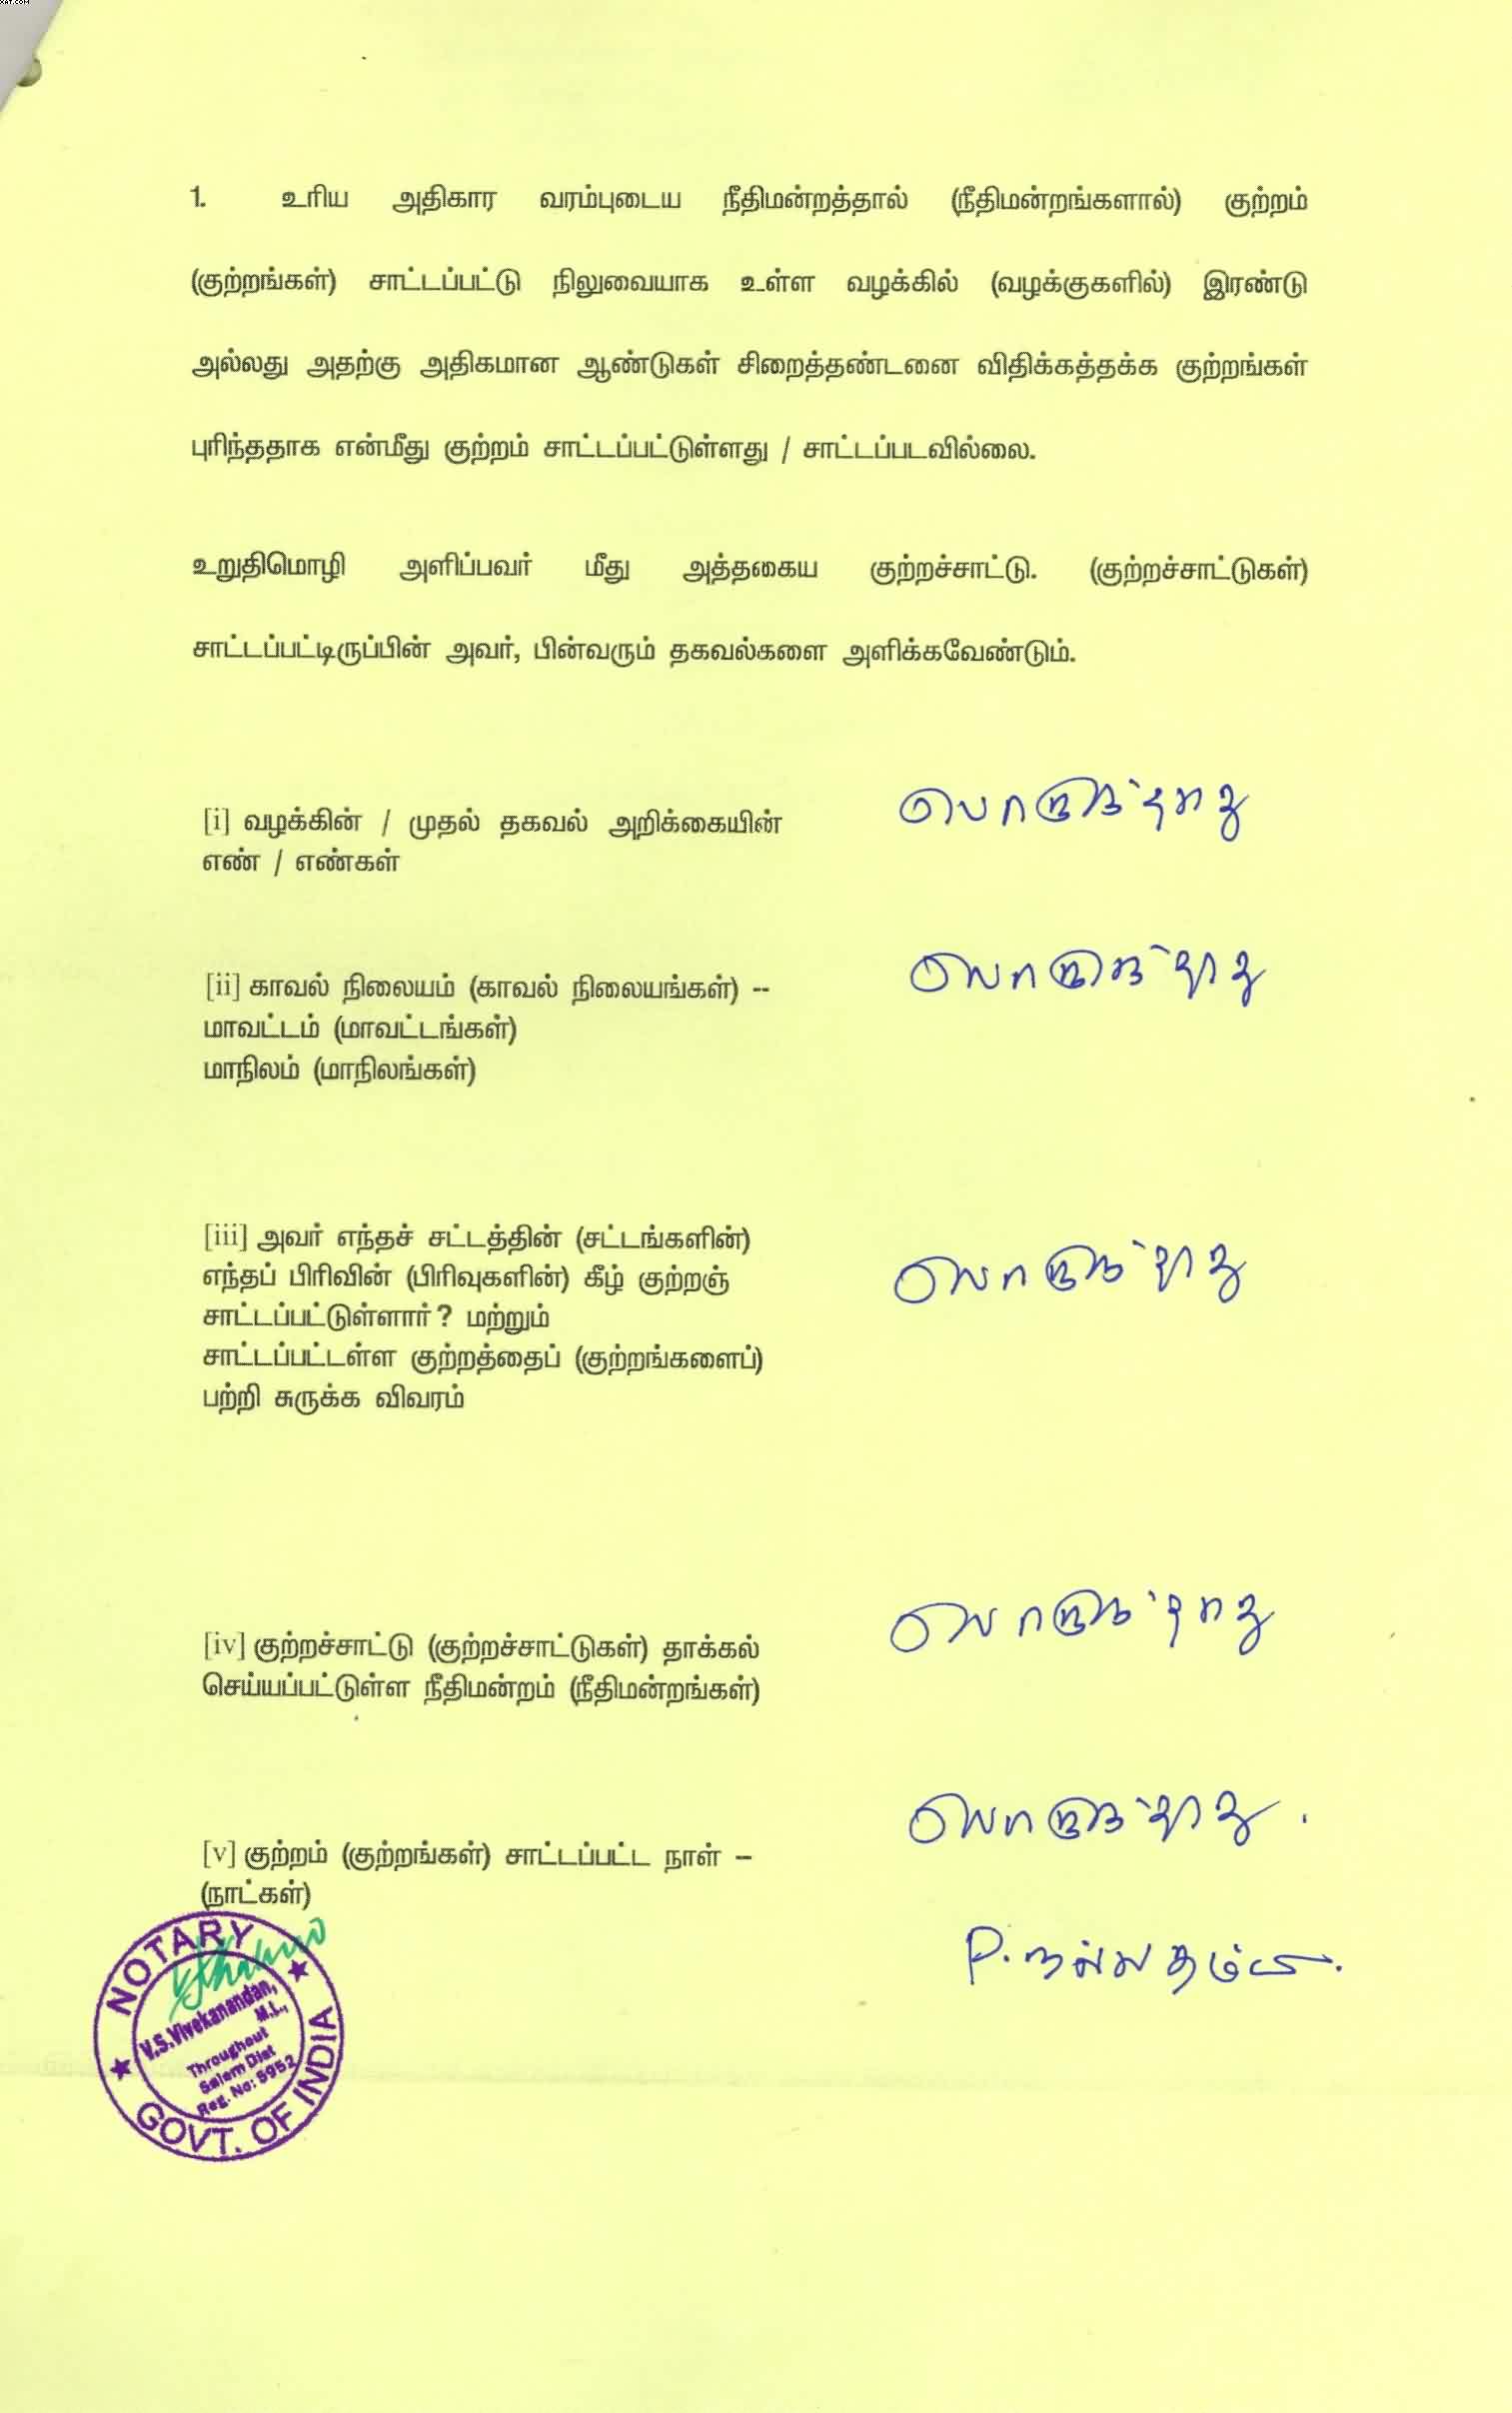 XAT.COM
1. உரிய அதிகார வரம்புடைய நீதிமன்றத்தால் (நீதிமன்றங்களால்) குற்றம்
(குற்றங்கள்) சாட்டப்பட்டு நிலுவையாக உள்ள வழக்கில் (வழக்குகளில்) இரண்டு
அல்லது அதற்கு அதிகமான ஆண்டுகள் சிறைத்தண்டனை விதிக்கத்தக்க குற்றங்கள்
புரிந்ததாக என்மீது குற்றம் சாட்டப்பட்டுள்ளது / சாட்டப்படவில்லை.
உறுதிமொழி அளிப்பவர் மீது அத்தகைய குற்றச்சாட்டு. (குற்றச்சாட்டுகள்)
சாட்டப்பட்டிருப்பின் அவர், பின்வரும் தகவல்களை அளிக்கவேண்டும்.
[i] வழக்கின் / முதல் தகவல் அறிக்கையின் பொருந்தாது
எண் / எண்கள்
[ii] காவல் நிலையம் (காவல் நிலையங்கள்) -- பொருந்தாது
மாவட்டம் (மாவட்டங்கள்)
மாநிலம் (மாநிலங்கள்)
[iii] அவர் எந்தச் சட்டத்தின் (சட்டங்களின்)
எந்தப் பிரிவின் (பிரிவுகளின்) கீழ் குற்றஞ் பொருந்தாது
சாட்டப்பட்டுள்ளார்? மற்றும்
சாட்டப்பட்டள்ள குற்றத்தைப் (குற்றங்களைப்)
பற்றி சுருக்க விவரம்
[iv] குற்றச்சாட்டு (குற்றச்சாட்டுகள்) தாக்கல் பொருந்தாது
செய்யப்பட்டுள்ள நீதிமன்றம் (நீதிமன்றங்கள்)
[v] குற்றம் (குற்றங்கள்) சாட்டப்பட்ட நாள் – பொருந்தாது.
(நாட்கள்)
P. நல்லதம்பி.
NOTARY
V.S.Vivekanandan,
M.L.,
Throughout
Salem Dist
Reg. No: 5952
GOVT. OF INDIA